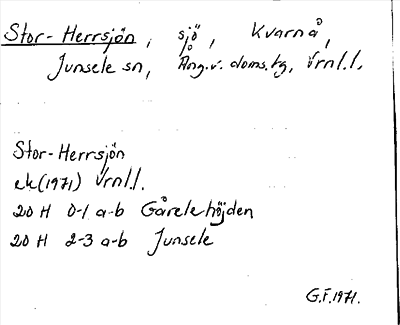 Stor-Herrsjön, sjö, Kvarnå,
Junsele sn, Ång.v. doms.tg, Vrnl.l.
Stor-Herrsjön
ek (1971) Vrnl.l.
20 H 0-1 a-b Gårelehöjden
20 H 2-3 a-b Junsele
G.F. 1971.